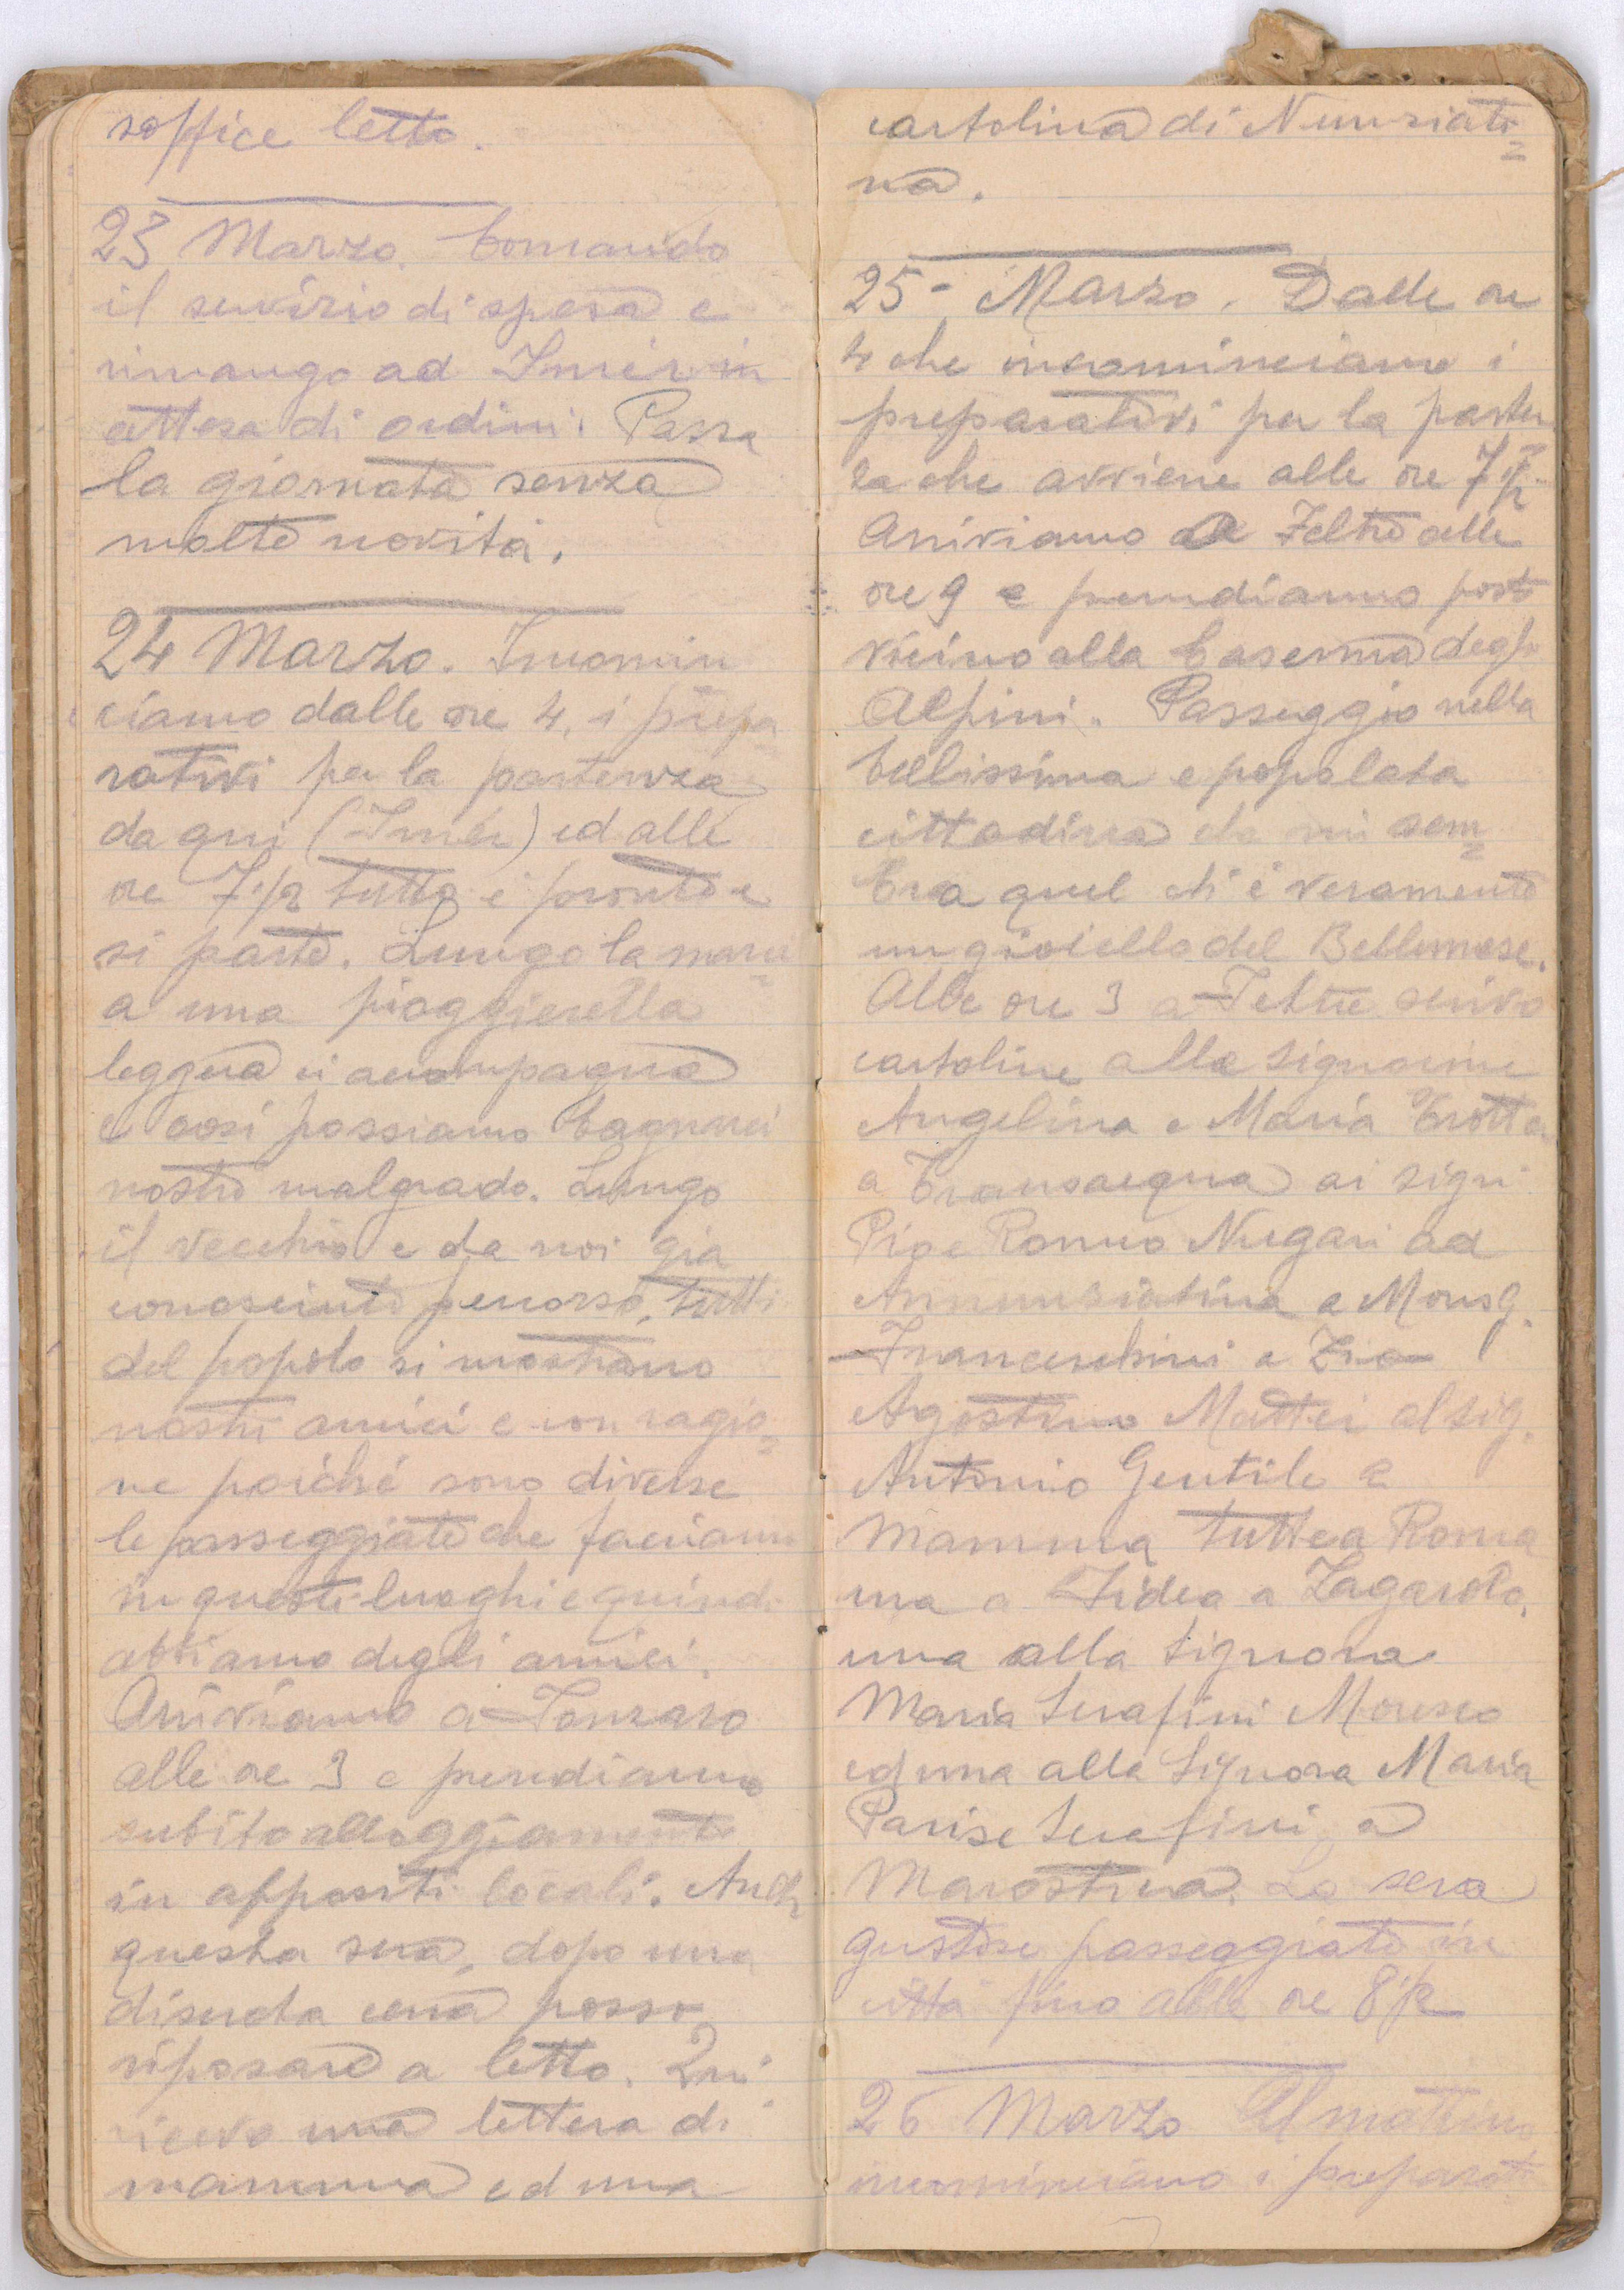 soffice letto.
23 Marzo. Comando
il servizio di spesa e
rimango ad Imér in
attesa di ordini. Passa
la giornata senza
molte novità.
24 Marzo. Incomin
ciamo dalle ore 4, i prepa
rativi per la partenza
da qui (Imér) ed alle
ore 7 1/2 tutto è pronto e
si parte. Lungo la marci=
a una pioggierella
leggera ci accompagna
e così possiamo bagnarci
nostro malgrado. Lungo
il vecchio e da noi già
conosciuto percorso, tutti
del popolo si mostrano
nostri amici e con ragio=
ne poiché sono diverse
le passeggiate che facciamo
in questi luoghi e quindi
abbiamo degli amici.
Arriviamo a Fonzaso
alle ore 3 e prendiamo
subito alloggiamento
in appositi locali. Anche
questa sera, dopo una
discreta cena posso
riposare a letto. Qui
ricevo una lettera di
mamma ed una
cartolina di Nunziati=
na.
25- Marzo. Dalle ore
4 che incominciamo i
preparativi per la parten
za che avviene alle ore 7 1/2.
Arriviamo a Feltre alle
ore 9 e prendiamo posto
vicino alla Caserma degli
Alpini. Passeggio nella
bellissima e popolata
cittadina che mi sem=
bra quel che è veramente
un gioiello del Bellunese.
Alle ore 3 a Feltre scrivo
cartoline alle signorine
Angelina e Maria Trotta
a Transacqua ai sign.
Pio e Romeo Nugari ad
Annunziatina a Mons.
Franceschini a Zio
Agostino Mattei al sig.
Antonio Gentile e
Mamma tutte a Roma
una a Fidea a Zagarolo,
una alla Signora
Maria Serafini Moresco
ed una alla Signora Maria
Parise Serafini, a
Marostica. La sera
gustose passeggiate in
città fino alle ore 8 1/2
26 Marzo Al mattino
incominciano i preparati